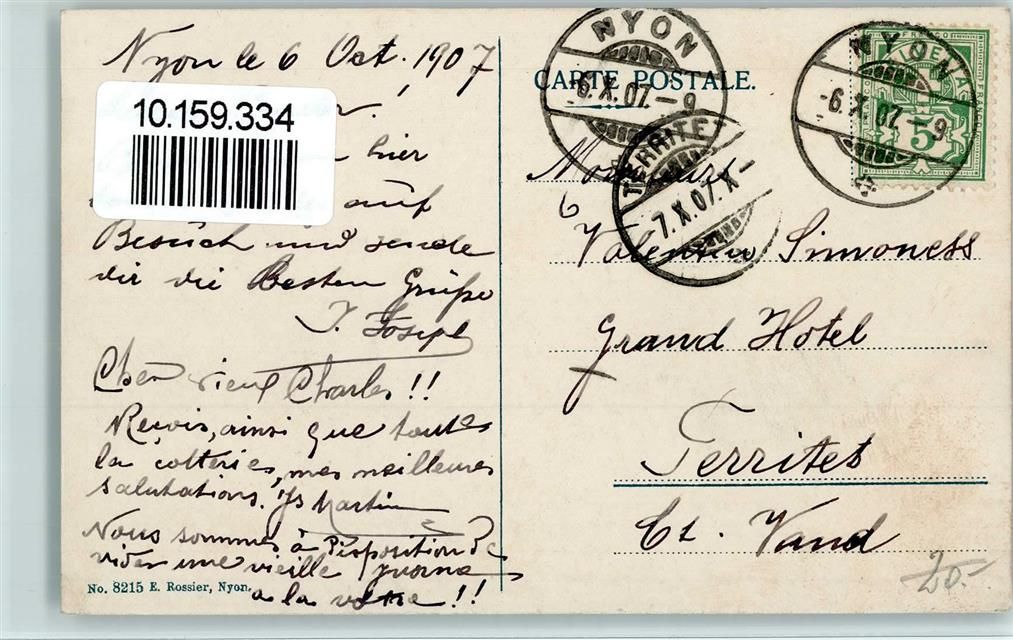 Nyon le 6 Oct. 1907
10.159.334
hier
auf
Besuch und sende
dir die Besten Grüße
J. Joseph
Cher vieux Charles!!
Reçois, ainsi que toutes
la cotterie, mes meilleures
salutations. Martin
Nous sommes à Disposition de
vider une vieille
à la votre!!
No. 8215 E. Rossier, Nyon.
CARTE POSTALE.
NYON
6.X.07.-9
TERRITET
7.X.07.X-
NYON
-6.X.07.-9
FRANCO
HELVETIA
5
Monsieur
Valentin Simoness
Grand Hotel
Territet
Ct. Vaud
20.-